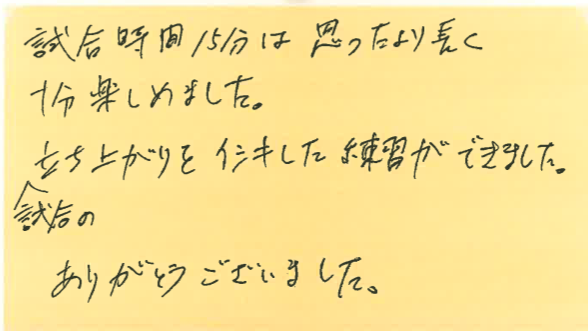 試合時間15分は思ったより長く
十分楽しめました。
立ち上がりをイシキした練習ができました。
試合の
ありがとうございました。